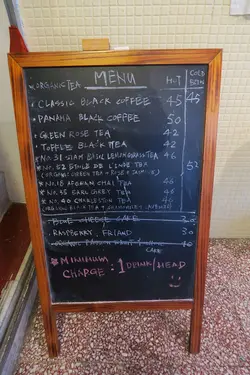 MENU
HOT
COLD
ORGANIC TEA
CLASSIC BLACK COFFEE 45 45
PANAMA BLACK COFFEE 50
GREEN ROSE TEA 42
TOFFEE BLACK TEA 42
NO. 31 SIAM BASIL LEMONGRASS TEA 46
NO. 52 ETOILE DE L'INDE TEA 52
(ORGANIC GREEN TEA + ROSE + JASMINE)
NO. 18 AFGHAN CHAI TEA 46
NO. 35 EARL GREY TEA 46
NO. 40 CHARLESTON TEA 46
BLUE CHEESE CAKE
RASPBERRY FRIAND 30
ORGANIC PASSION FRUIT 40
CAKE
*MINIMUM
CHARGE : 1 DRINK/HEAD